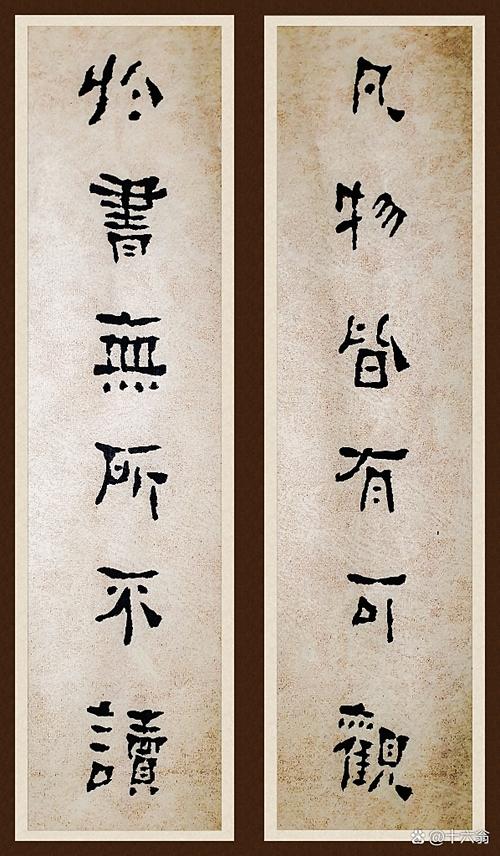 凡物皆有可觀
扵書無所不讀
@十六翁